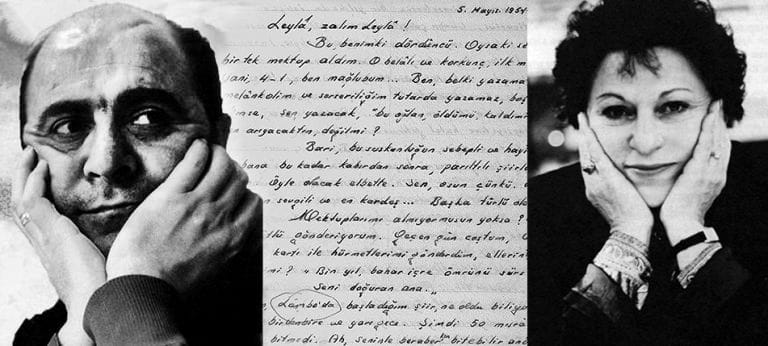 5. Mayıs. 1954
Leylâ, zalim Leylâ !
Bu, benimki dördüncü. Oysaki se
bir tek mektup aldım. O belâlı ve korkunç, ilk m
ani, 4-1, ben mağlubum... Ben, belki yazama
melânkolim ve serseriliğim tutarda yazamaz, boş
imse, sen yazacak, "bu oğlan, öldümü, kaldımı
n arıyacaktın, değilmi ?
Bari, bu suskunluğun sebepli ve hayı
bana bu kadar kahırdan sonra, parıltılı şiirle
Öyle olacak elbette. Sen, osun çünkü.
n sevgili ve en kardeş... Başka türlü ol
Mektuplarımı almıyormusun yoksa ?
tlü gönderiyorum. Geçen gün coştum,
kartı ile hürmetlerimi gönderdim, ellerini
mi ? "Bin yıl, bahar içre ömrünü sürs
Seni doğuran ana..„
Lambo'da başladığım şiir, ne oldu biliyo
birdenbire ve garipçe. Şimdi 50 mısra
bitmedi. Ah, seninle beraber bitebilir anc